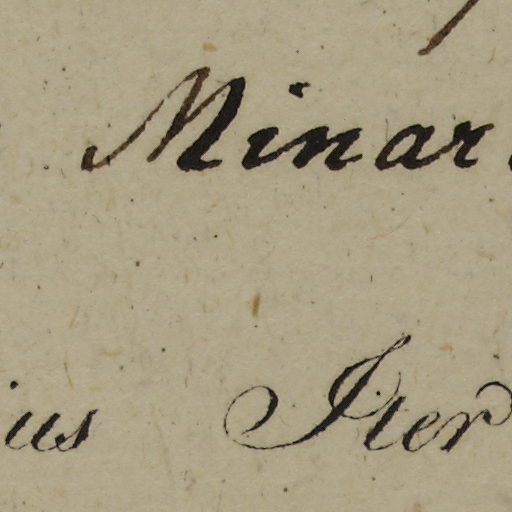 Minar
ius Iter